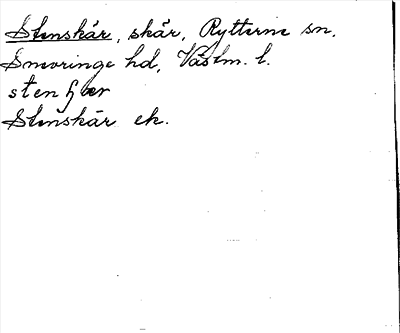 Stenskär, skär, Rytterne sn.
Snevringe hd, Västm. l.
sten
Stenskär ek.